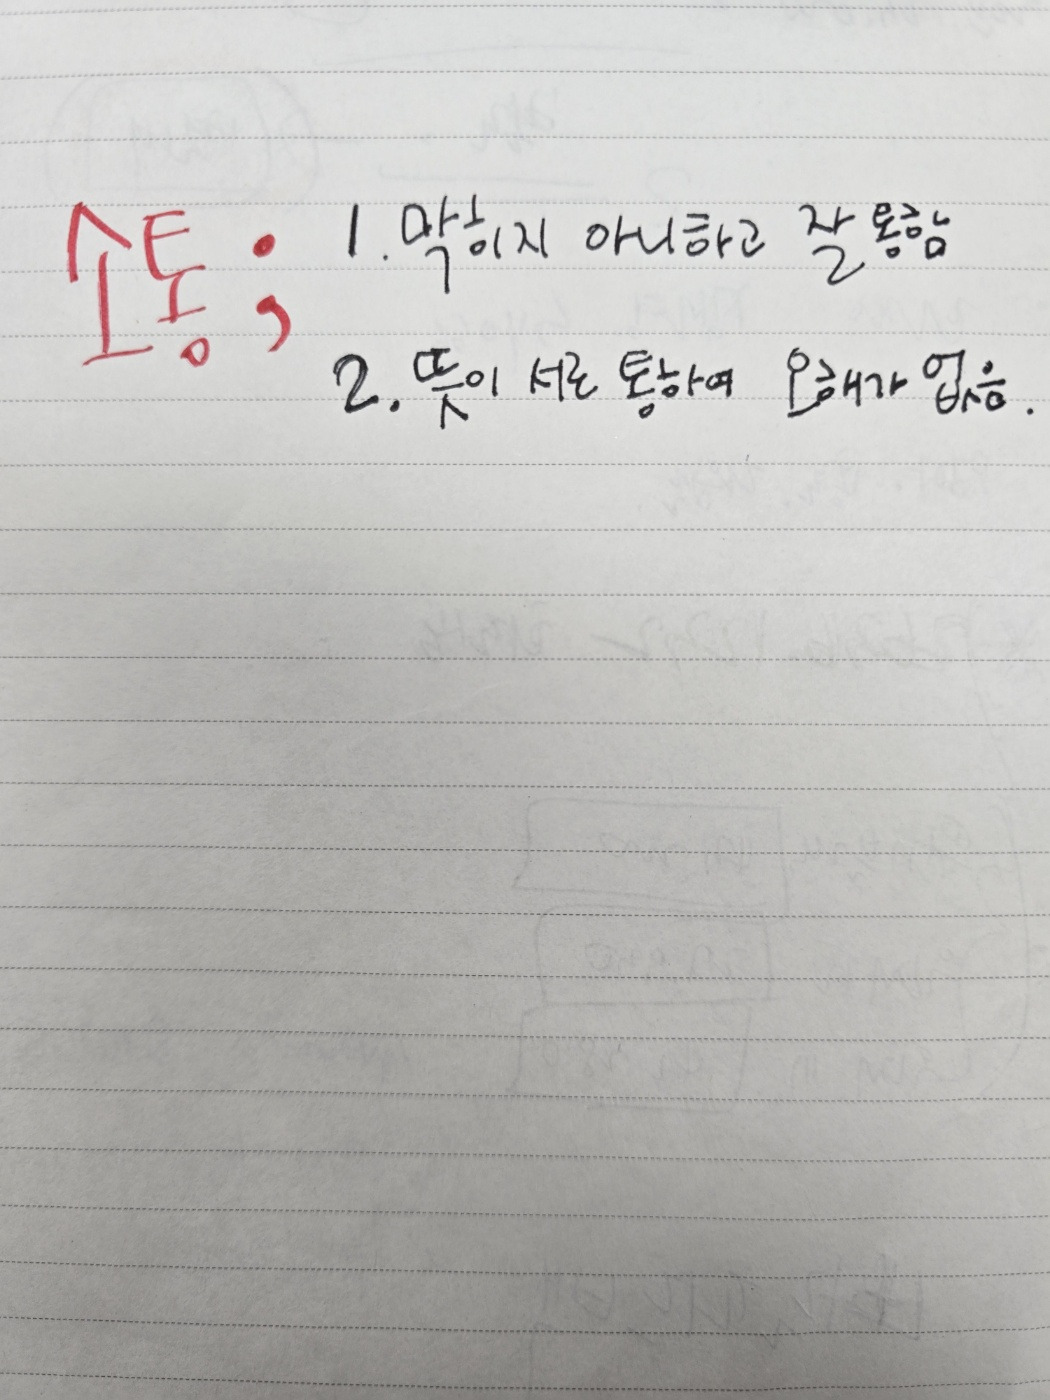 소통; 1. 막히지 아니하고 잘 통함
2. 뜻이 서로 통하여 오해가 없음.